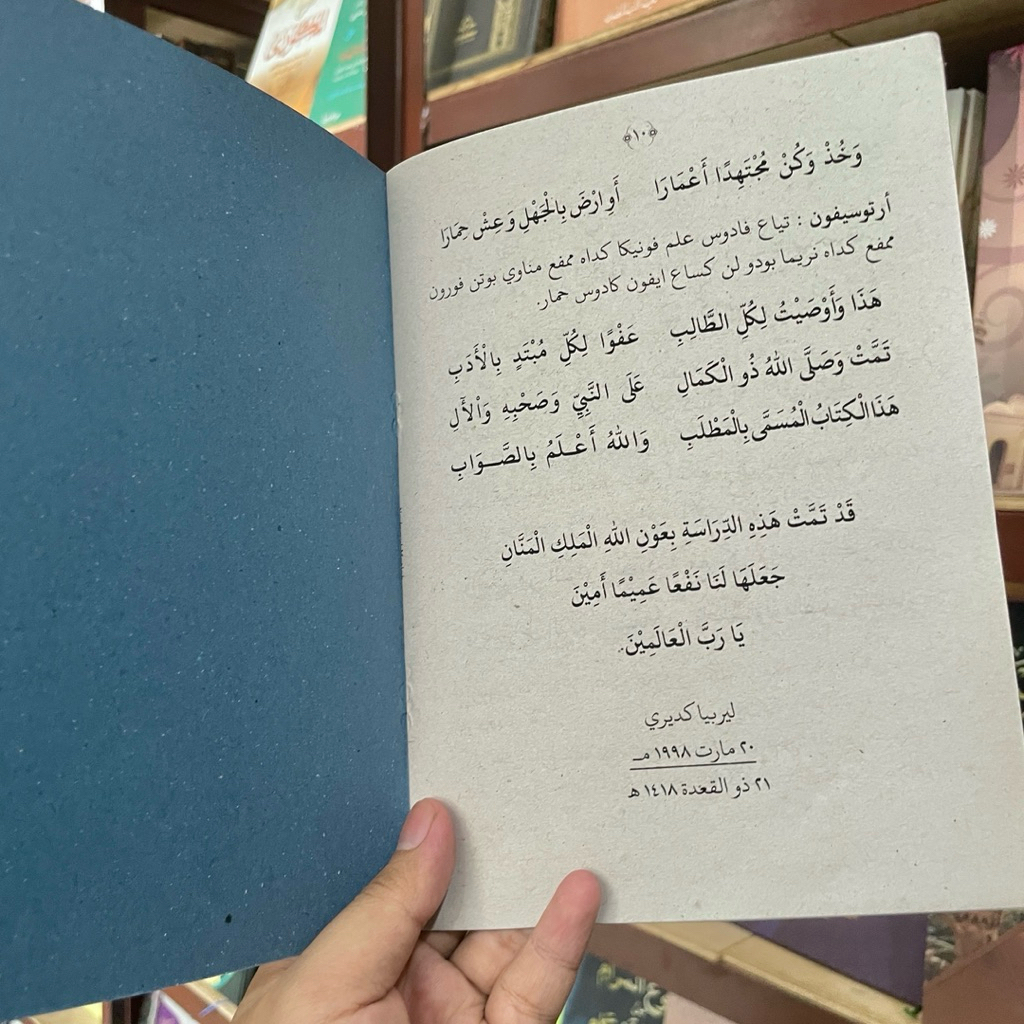 ﴿١٠﴾
وَخُذْ وَكُنْ مُجْتَهِدًا أَعْمَارَا أَوِ ارْضَ بِالْجَهْلِ وَعِشْ حِمَارَا
أرتوسيفون : تياع فادوس علم فونيكا كداه ممفع مناوي بوتن فورون
ممفع كداه نريما بودو لن كساع ايفون كادوس حمار.
هَذَا وَأَوْصَيْتُ لِكُلِّ الطَّالِبِ عَفْوًا لِكُلِّ مُبْتَدٍ بِالْأَدَبِ
تَمَّتْ وَصَلَّى اللهُ ذُو الْكَمَالِ عَلَى النَّبِيِّ وَصَحْبِهِ وَالْأَلِ
هَذَا الْكِتَابُ الْمُسَمَّى بِالْمَطْلَبِ وَاللهُ أَعْلَمُ بِالصَّوَابِ
قَدْ تَمَّتْ هَذِهِ الدِّرَاسَةِ بِعَوْنِ اللهِ الْمَلِكِ الْمَنَّانِ
جَعَلَهَا لَنَا نَفْعًا عَمِيْمًا أَمِيْنَ
يَا رَبَّ الْعَالَمِيْنَ.
ليربيا كديري
٢٠ مارت ١٩٩٨ مـ
٢١ ذو القعدة ١٤١٨ هـ